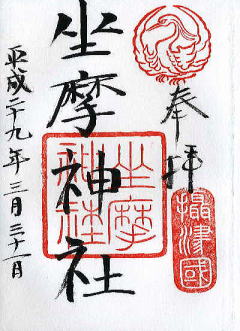 奉拝
攝津國
坐摩神社
坐摩
神社
平成二十九年三月三十一日